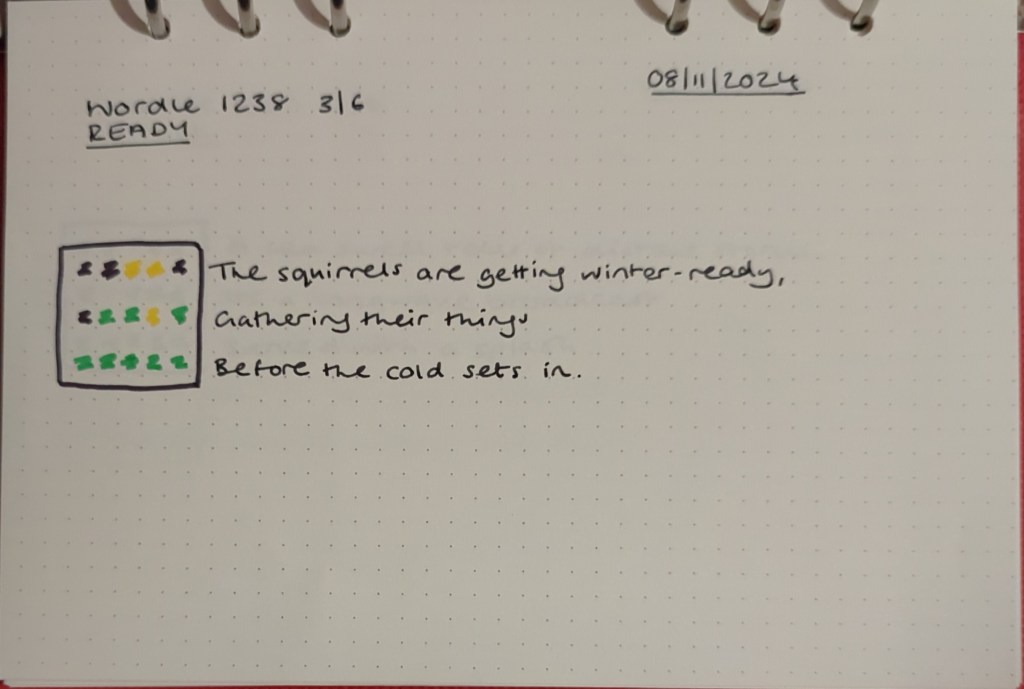 Wordle 1238 3/6
READY
08/11/2024
The squirrels are getting winter-ready,
Gathering their things
Before the cold sets in.